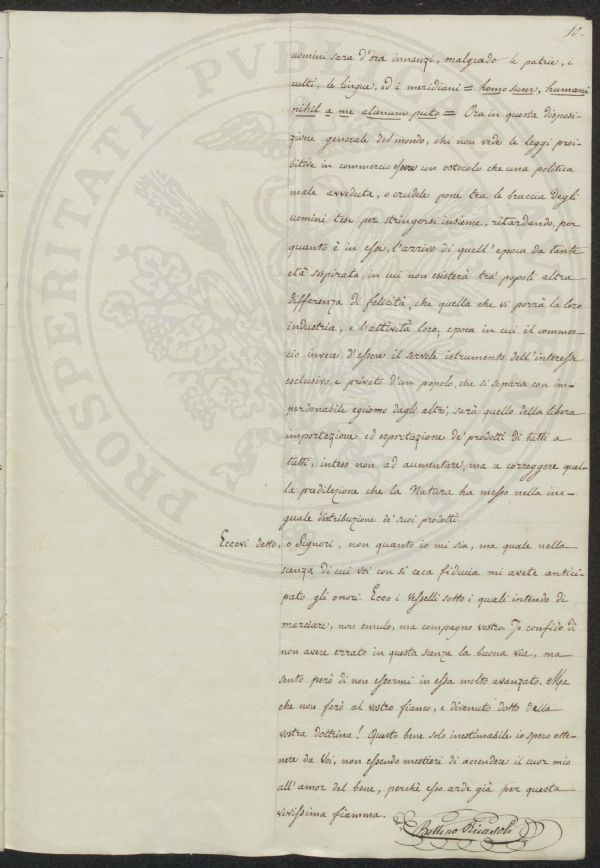 10.
uomini sara d'ora innanzi, malgrado le patrie, i
culti, le lingue, ed i meridiani = homo sum, humani
nihil a me alienum puto = Ora in questa disposi-
zione generale del mondo, chi non vede le leggi proi-
bitive in commercio essere un ostocolo che una politica
male avveduta, o crudele pone tra le braccia degli
uomini tese per stringersi insieme, ritardando, per
quanto è in esse, l'arrivo di quell'epoca da tante
età sospirata, in cui non esisterà tra' popoli altra
differenza di felicità, che quella che vi porrà la loro
industria, e l'attività loro; epoca in cui il commer-
cio invece d'essere il servile istrumento dell'interesse
esclusivo, e privato d'un popolo, che si separa con im-
perdonabile egoismo dagli altri, sarà quello della libera
importazione ed esportazione de' prodotti di tutti a
tutti, inteso non ad aumentare, ma a correggere quel-
la predilezione che la Natura ha messo nella ine-
guale distribuzione de' suoi prodotti.
Eccovi detto, o Signori, non quanto io mi sia, ma quale nella
scenza di cui voi con si ceca fiducia mi avete antici-
pato gli onori. Ecco i Vesselli sotto i quali intendo di
marciare, non emulo, ma compagno vostro. Io confido di
non avere errato in questa scenza la buona via, ma
sento però di non essermi in essa molto avanzato. Ma
che non farò al vostro fianco, e divenuto dotto della
vostra dottrina! Questo bene solo inestimabile io spero otte-
nere da Voi, non essendo mestieri di accendere il cuor mio
all'amor del bene, perchè esso arde già per questa
vivissima fiamma.
Bettino Ricasoli
PROSPERITATI PUBLICAE